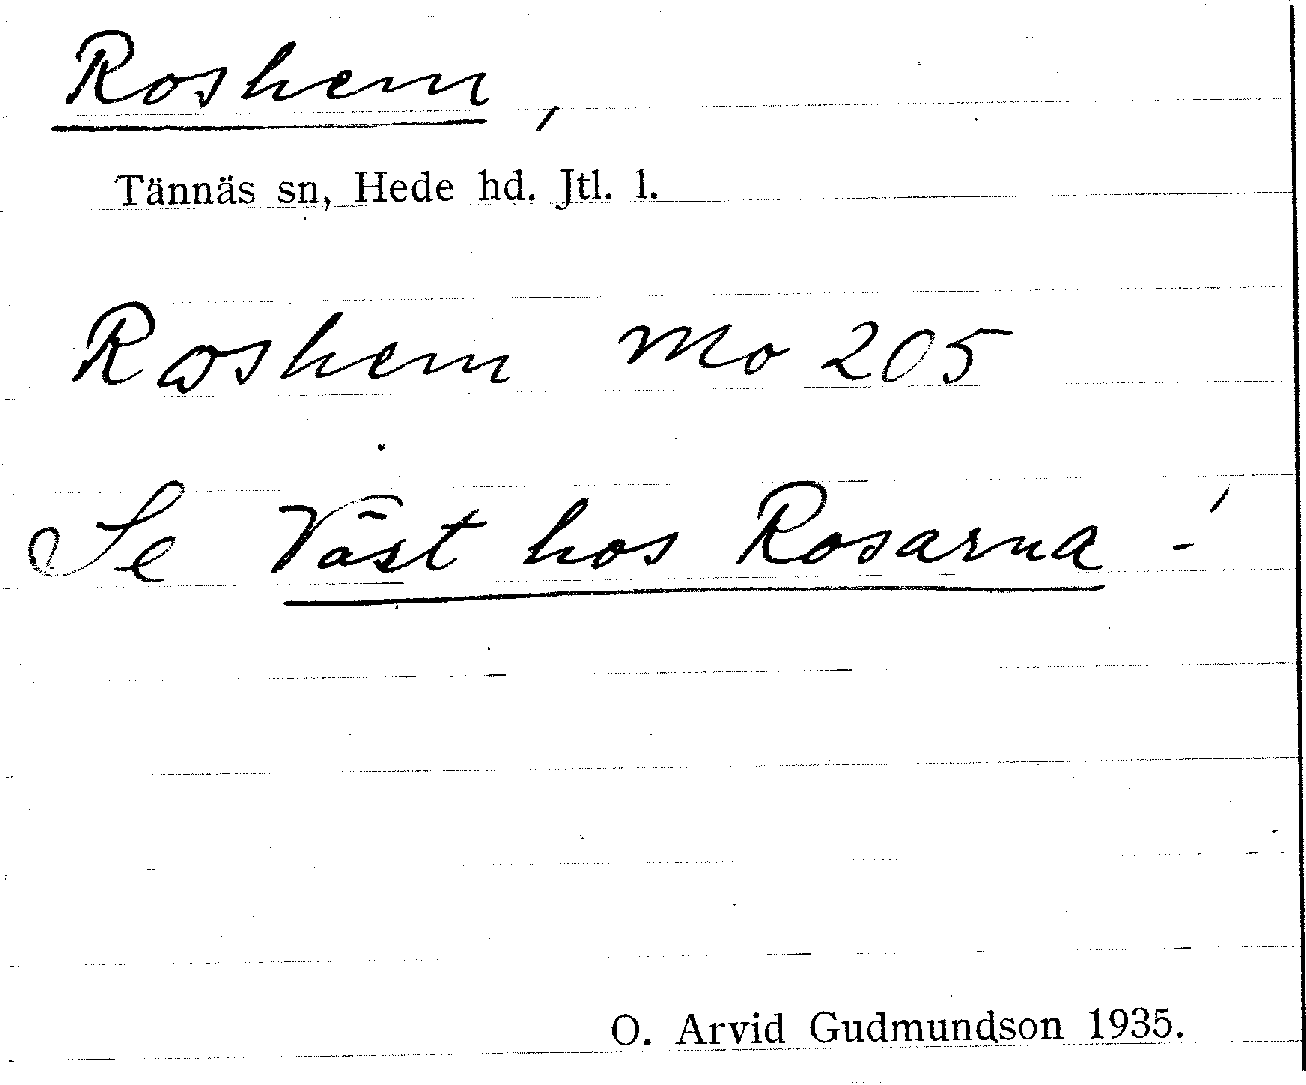 Roshem,
Tännäs sn, Hede hd. Jtl. l.
Roshem Mo 205
Se Väst hos Rosarna!
O. Arvid Gudmundson 1935.